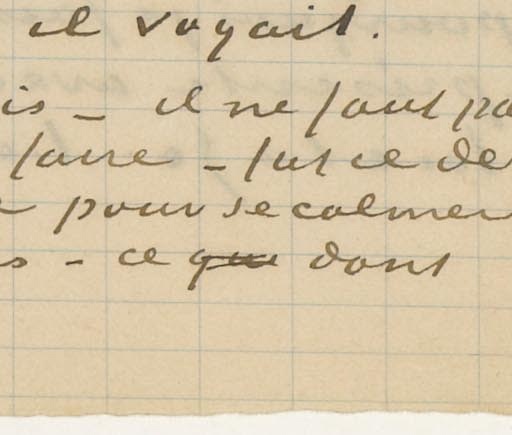 il voyait.
is - il ne faut pa
faire - fut ce de
pour se calmer
s - ce que dont